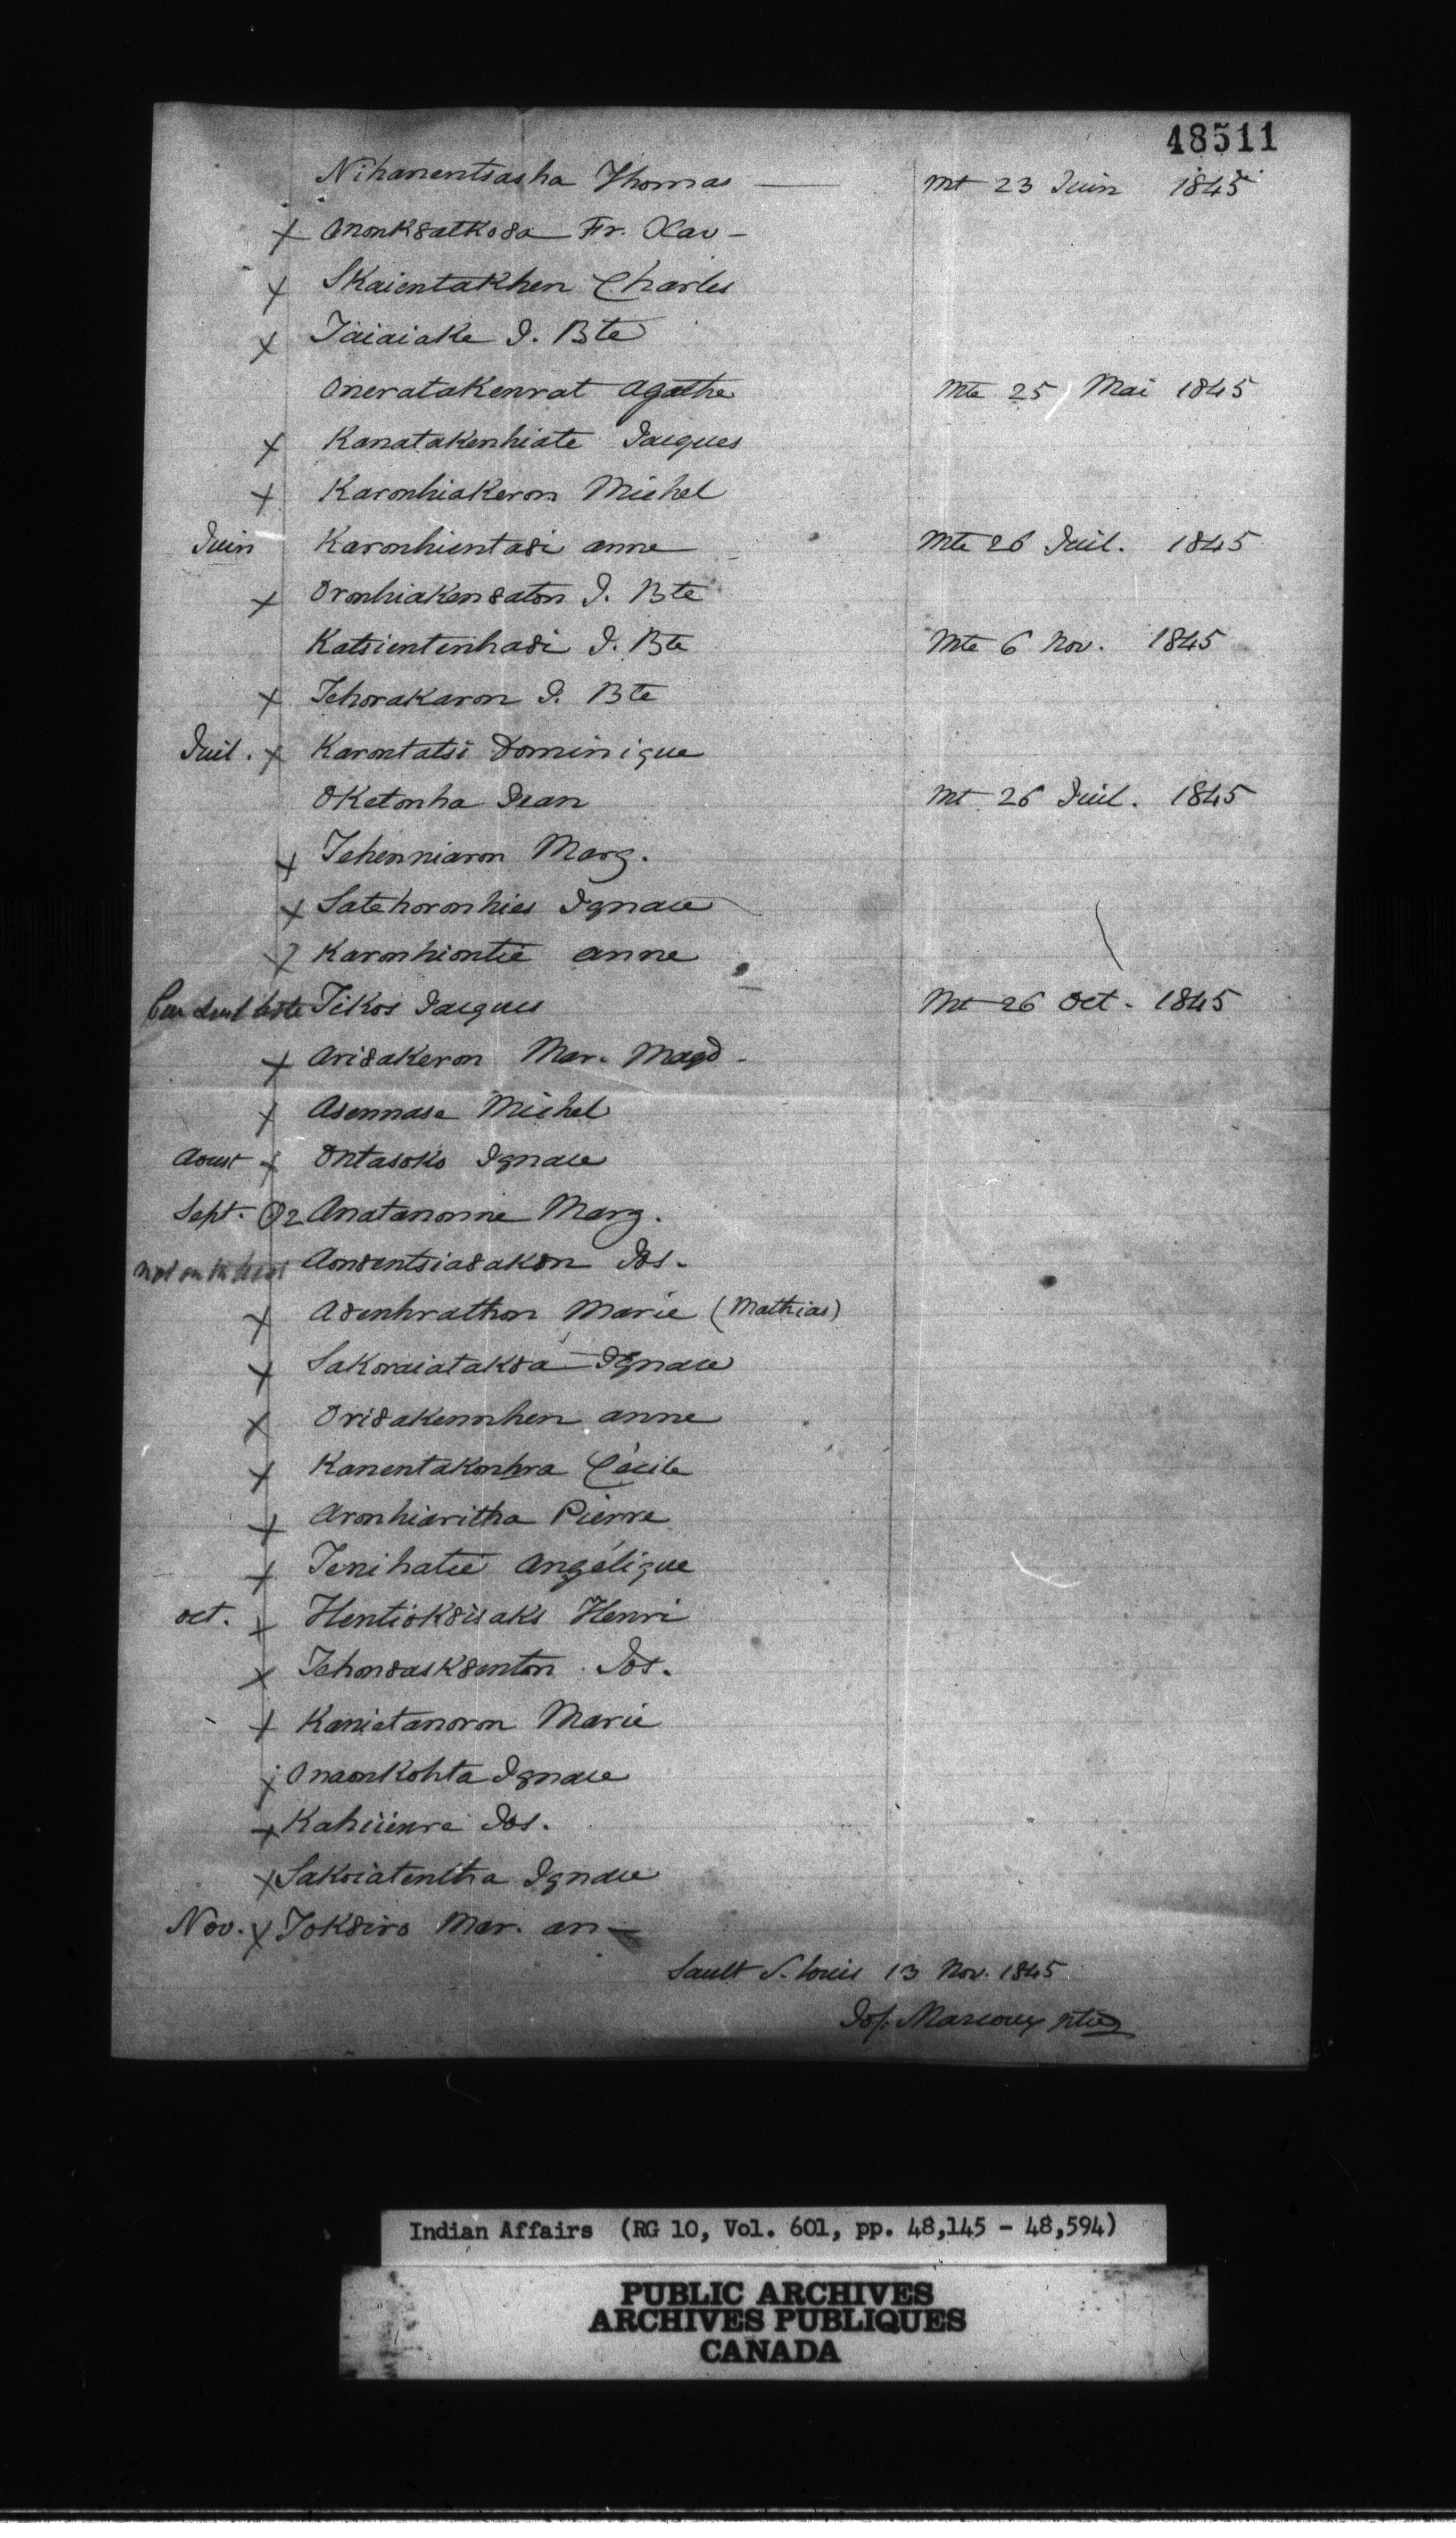 48511
Nihanentsasha Thomas — mt 23 Juin 1845
x Anonk8atko8a Fr. Xav -
x Skaientakhen Charles
x Taiaiake J. Bte
Oneratakenrat Agathe mte 25 Mai 1845
x Kanatakenhiate Jacques
x Karonhiakeron Michel
Juin Karonhienta8i anne mte 26 Juil. 1845
x Oronhiaken8aton J. Bte
Katsientenha8i J. Bte mte 6 Nov. 1845
x Tehorakaron J. Bte
Juil. x Karontatsi Dominique
Oketonha Jean mt 26 Juil. 1845
x Tehenniaron Marg.
x Satehoronhies Ignace
Karonhiontie anne
Tikos Jacques Mt 26 Oct. 1845
x Ari8akeron Mar. Magd -
x Asennase Michel
Aoust x Ontasoko Ignace
Sept. O2 Anatanonne Marg.
Aon8entsia8ak8n Jos.
x A8enhrathon Marie (Mathias)
x Sakoraiatak8a Ignace
x Ori8akennhen anne
x Kanentakonhra Cécile
x Aronhiaritha Pierre
x Tenihatie Angélique
oct. x Hentiok8isaks Henri
x Tehon8ask8enton Jos.
x Kanietanoron Marie
x Onaonkohta Ignace
x Kahiienre Jos.
x Sakoiatentha Ignace
Nov. x Tok8iro Mar. an -
Sault S. Louis 13 Nov. 1845
Jos. Marcoux ptre
Indian Affairs (RG 10, Vol. 601, pp. 48,145 - 48,594)
PUBLIC ARCHIVES
ARCHIVES PUBLIQUES
CANADA